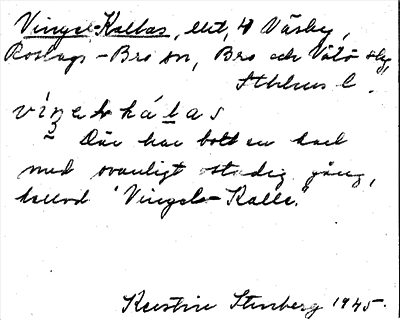 Vingel-Kallas, ext, 4 Väsby,
Roslags-Bro sn, Bro och Vätö slg,
Sthlms l.
víŋelkálas
Där har bott en karl
med ovanligt ostadig gång,
kallad "Vingel-Kalle."
Kerstin Stenberg 1945.